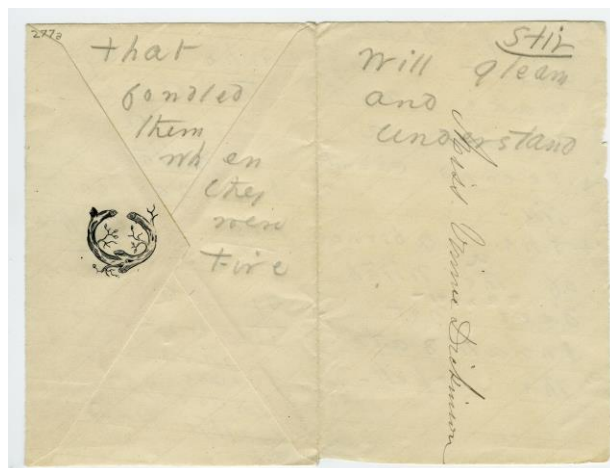 that
fondled
them
when
they
were
Fire
stir
Will gleam
and
understand
Miss Vinnie Dickinson